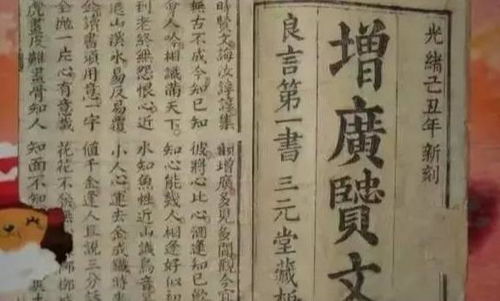 光緒己丑年 新刻
增廣贒文
良言第一書 三元堂藏
時賢文誨汝諄諄集韻增廣多見多聞觀今宜
無古不成今知己知彼將心比心酒逢知己飲
會人吟相識滿天下知心能幾人相逢好似初
到老終無怨恨心近水知魚性近山識鳥音
退山溪水易反易覆小人心運去金成鐵時
讀書須用意一字值千金逢人且說三分話
全抛一片心有意栽花花不發無
虎畫皮難畫骨知人知面不知